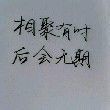 相聚有时
后会无期